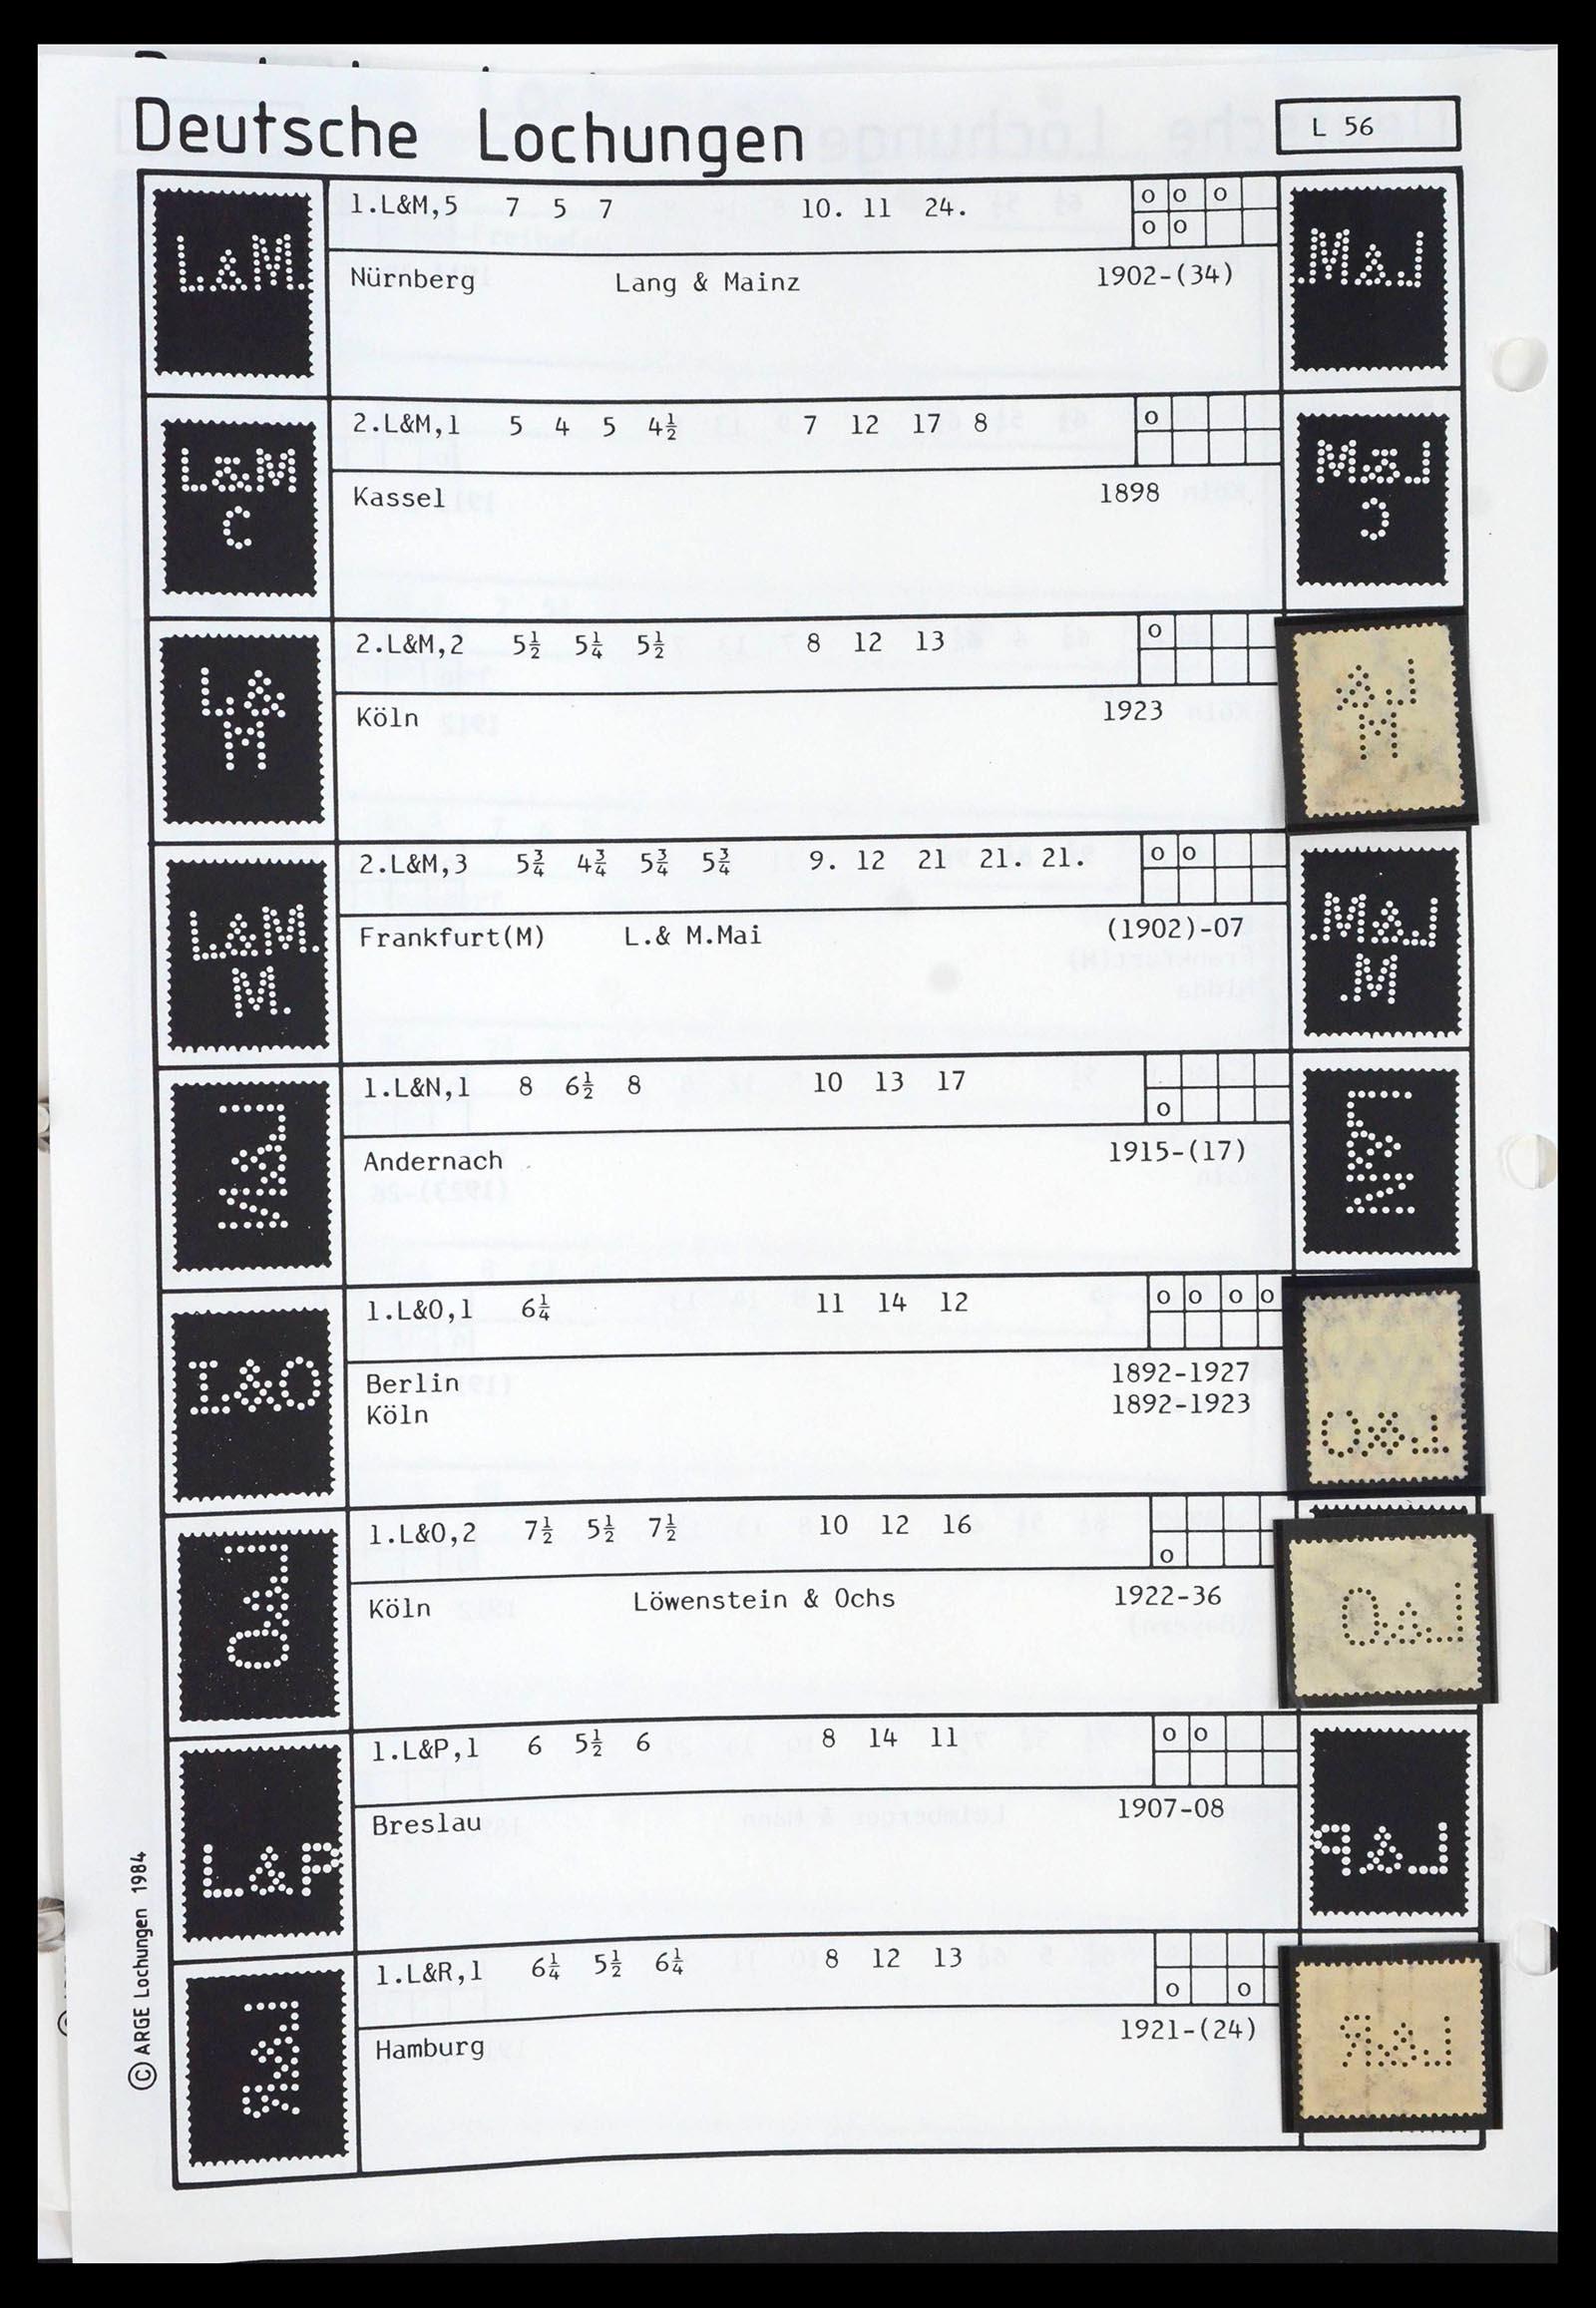 Deutsche Lochungen
L 56
L&M.
1.L&M,5 7 5 7 10. 11 24.
o o o
o o
Nürnberg Lang & Mainz 1902-(34)
L&M
C
2.L&M,1 5 4 5 4½ 7 12 17 8
o
Kassel 1898
L&
M
2.L&M,2 5½ 5¼ 5½ 8 12 13
o
Köln 1923
L&M.
M.
2.L&M,3 5¾ 4¾ 5¾ 5¾ 9. 12 21 21. 21.
o o
Frankfurt(M) L.& M.Mai (1902)-07
L&N
1.L&N,1 8 6½ 8 10 13 17
o
Andernach 1915-(17)
L&O
1.L&O,1 6¼ 11 14 12
o o o o
Berlin 1892-1927
Köln 1892-1923
L&O
1.L&O,2 7½ 5½ 7½ 10 12 16
o
Köln Löwenstein & Ochs 1922-36
L&P
1.L&P,1 6 5½ 6 8 14 11
o o
Breslau 1907-08
L&R
1.L&R,1 6¼ 5½ 6¼ 8 12 13
o o
Hamburg 1921-(24)
© ARGE Lochungen 1984